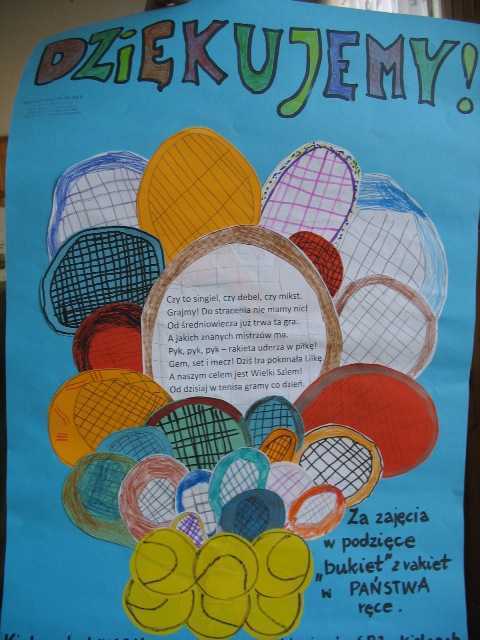 DZIĘKUJEMY!
Czy to singiel, czy debel, czy mikst.
Grajmy! Do stracenia nic mamy nic!
Od średniowiecza już trwa ta gra.
A jakich znanych mistrzów ma.
Pyk, pyk, pyk – rakieta uderza w piłkę!
Gem, set i mecz! Dziś Ira pokonała Lilkę
A naszym celem jest Wielki Szlem!
Od dzisiaj w tenisa gramy co dzień.
Za zajęcia
w podzięce
"bukiet" z rakiet
w PAŃSTWA
ręce.